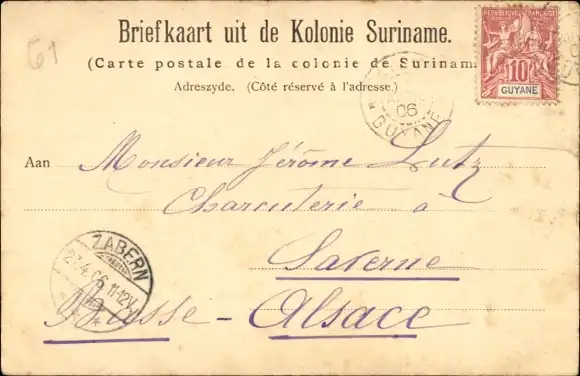 61
Briefkaart uit de Kolonie Suriname.
(Carte postale de la colonie de Surinam
Adreszyde. (Côté réservé à l'adresse.)
REPUBLIQUE FRANÇAISE
10
GUYANE
06
GUYANE
Aan Monsieur Jérôme Lutz
Charcuterie à
Saverne
Basse-Alsace
ZABERN
27.4.06 11-12V